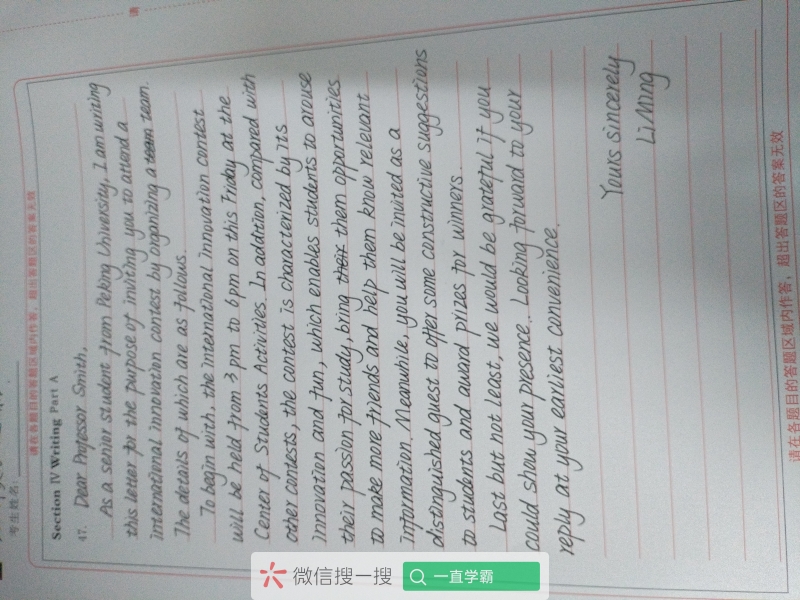 请
考生姓名:
请在各题目的答题区域内作答，超出答题区的答案无效
Section IV Writing Part A
47. Dear Professor Smith,
As a senior student from Peking University, I am writing
this letter for the purpose of inviting you to attend a
international innovation contest by organizing a team team.
The details of which are as follows.
To begin with, the international innovation contest
will be held from 3 pm to 6 pm on this Friday at the
Center of Students Activities. In addition, compared with
other contests, the contest is characterized by its
innovation and fun, which enables students to arouse
their passion for study, bring their them opportunities
to make more friends and help them know relevant
information. Meanwhile, you will be invited as a
distinguished guest to offer some constructive suggestions
to students and award prizes for winners.
Last but not least, we would be grateful if you
could show your presence. Looking forward to your
reply at your earliest convenience.
Yours sincerely
Li Ming
请在各题目的答题区域内作答，超出答题区的答案无效
微信搜一搜
一直学霸